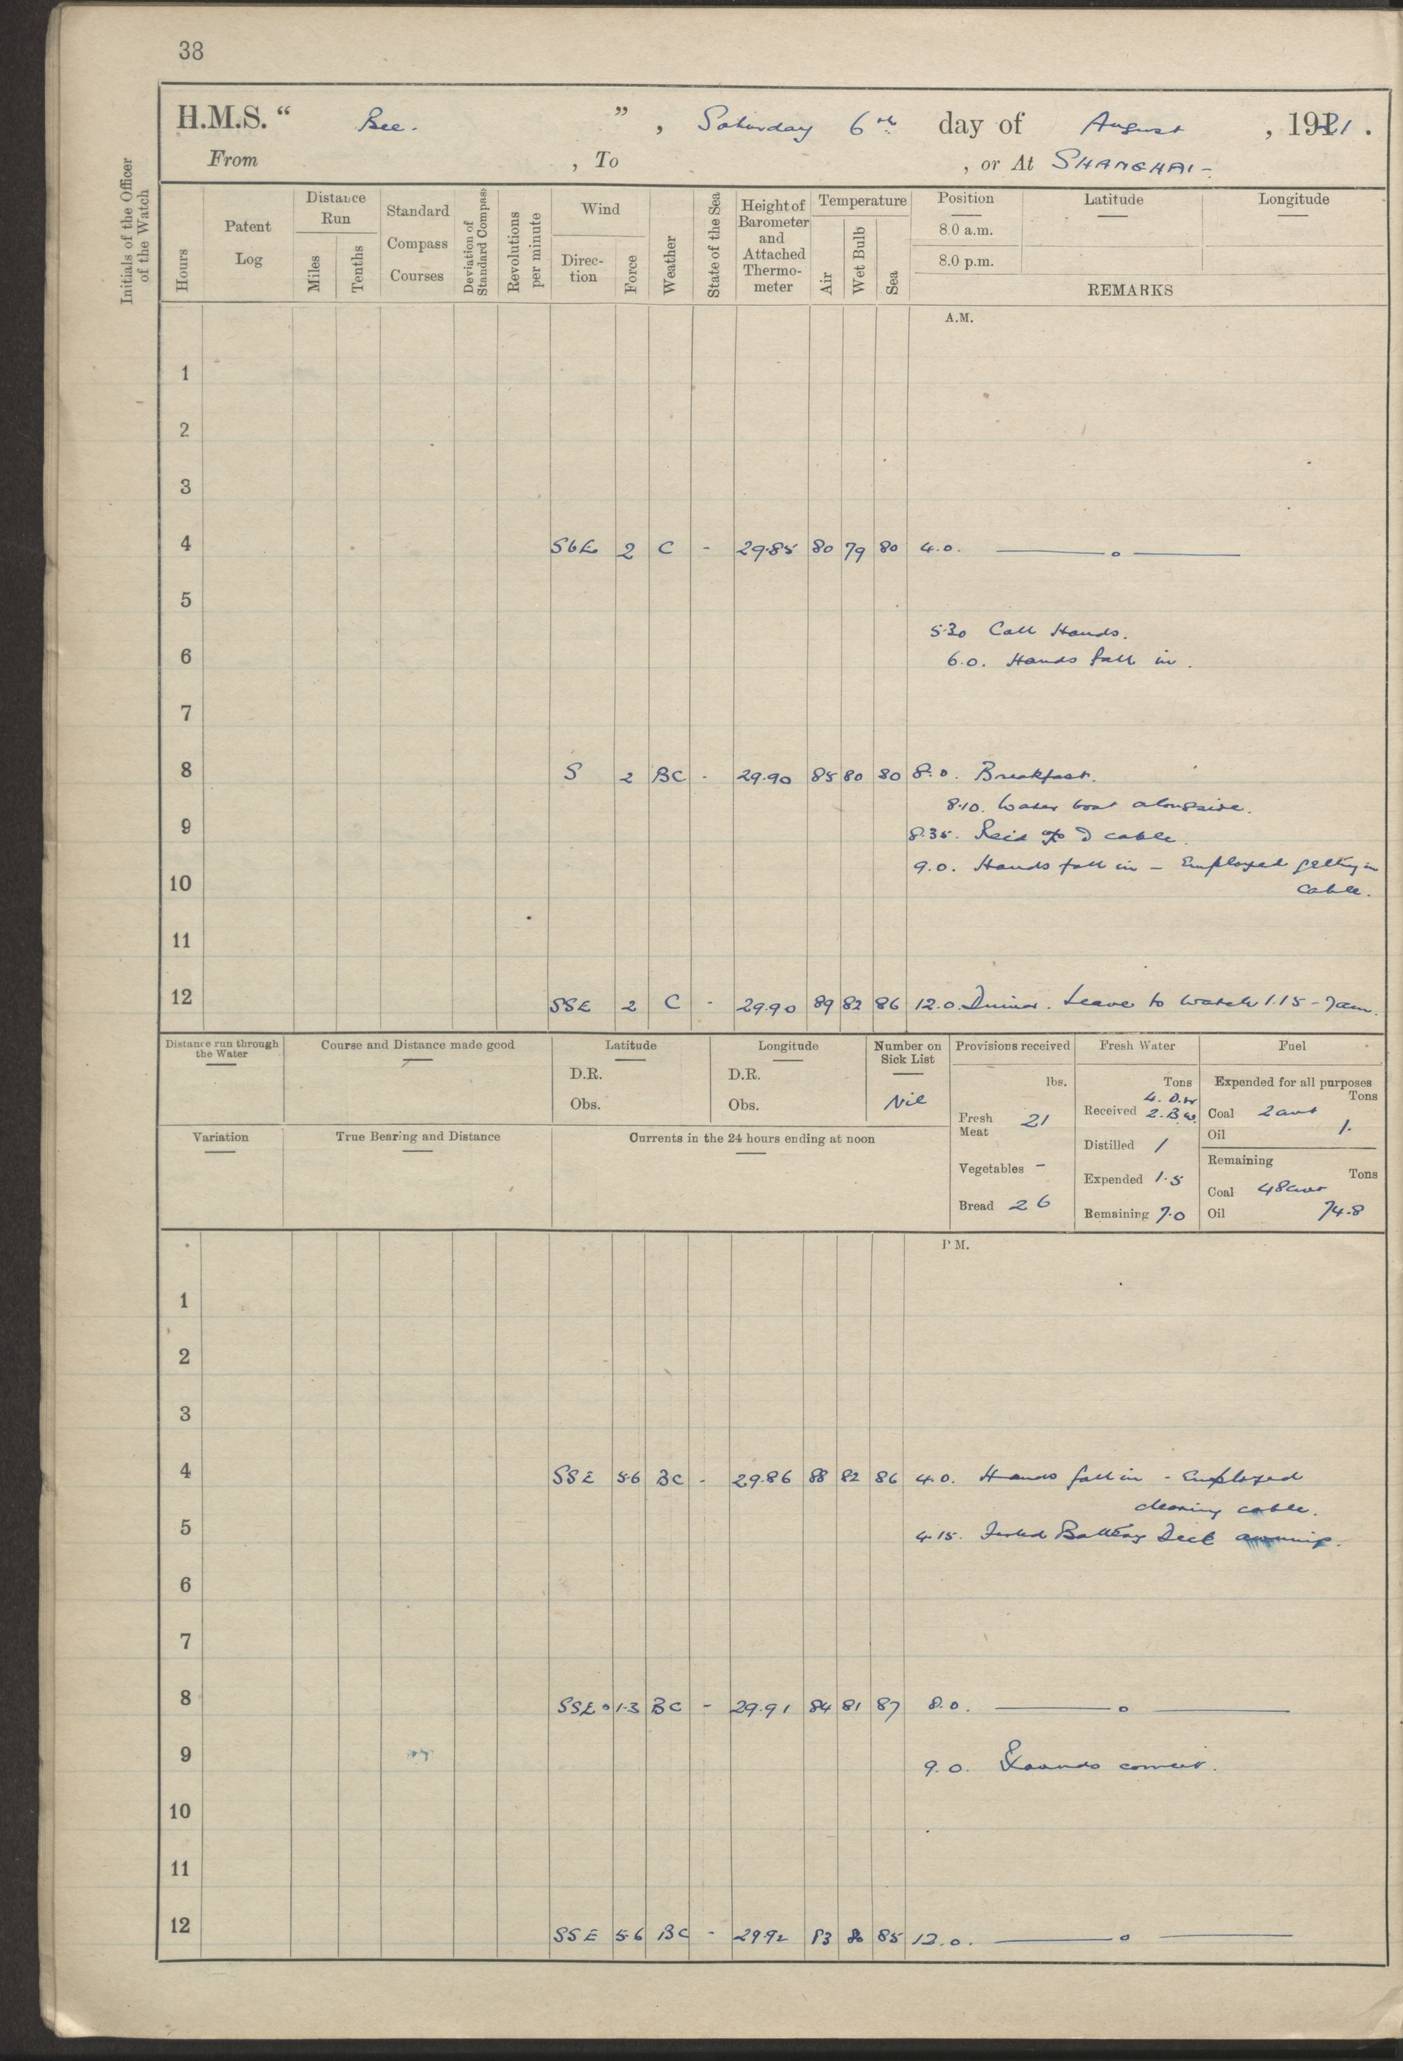 38
H.M.S. “ Bee. ” , Saturday 6th day of August , 1921 .
From , To , or At SHANGHAI -
Initials of the Officer of the Watch
Hours
Patent Log
Distance Run
Miles
Tenths
Standard Compass Courses
Deviation of Standard Compass
Revolutions per minute
Wind
Direction
Force
Weather
State of the Sea
Height of Barometer and Attached Thermometer
Temperature
Air
Wet Bulb
Sea
Position Latitude Longitude
8.0 a.m.
8.0 p.m.
REMARKS
A.M.
1
2
3
4 SbE 2 C - 29.85 80 79 80 4.0. —o—
5
5.30 Call Hands.
6 6.0. Hands fall in.
7
8 S 2 BC - 29.90 85 80 80 8.0. Breakfast.
8.10. Water boat alongside.
9 8.35. cable.
9.0. Hands fall in - Employed getting in
10 cable.
11
12 SSE 2 C - 29.90 89 82 86 12.0. Dinner. Leave to watch 1.15 - 7am.
Distance run through the Water
Course and Distance made good
Latitude
D.R.
Obs.
Longitude
D.R.
Obs.
Number on Sick List
Nil
Provisions received
lbs.
Fresh Meat 21
Vegetables -
Bread 26
Fresh Water
Tons
4. D.W
Received 2. B.W.
Distilled 1
Expended 1.5
Remaining 7.0
Fuel
Expended for all purposes
Tons
Coal 2 cwt
Oil 1.
Remaining
Tons
Coal 48 cwt
Oil 74.8
Variation
True Bearing and Distance
Currents in the 24 hours ending at noon
P.M.
1
2
3
4 SSE 5.6 BC - 29.86 88 82 86 4.0. Hands fall in - Employed
cleaning cable.
5 4.15. Furled Battery Deck awning.
6
7
8 SSE 1.3 BC - 29.91 84 81 87 8.0. —o—
9 9.0. Rounds correct.
10
11
12 SSE 5.6 BC - 29.92 83 80 85 12.0. —o—